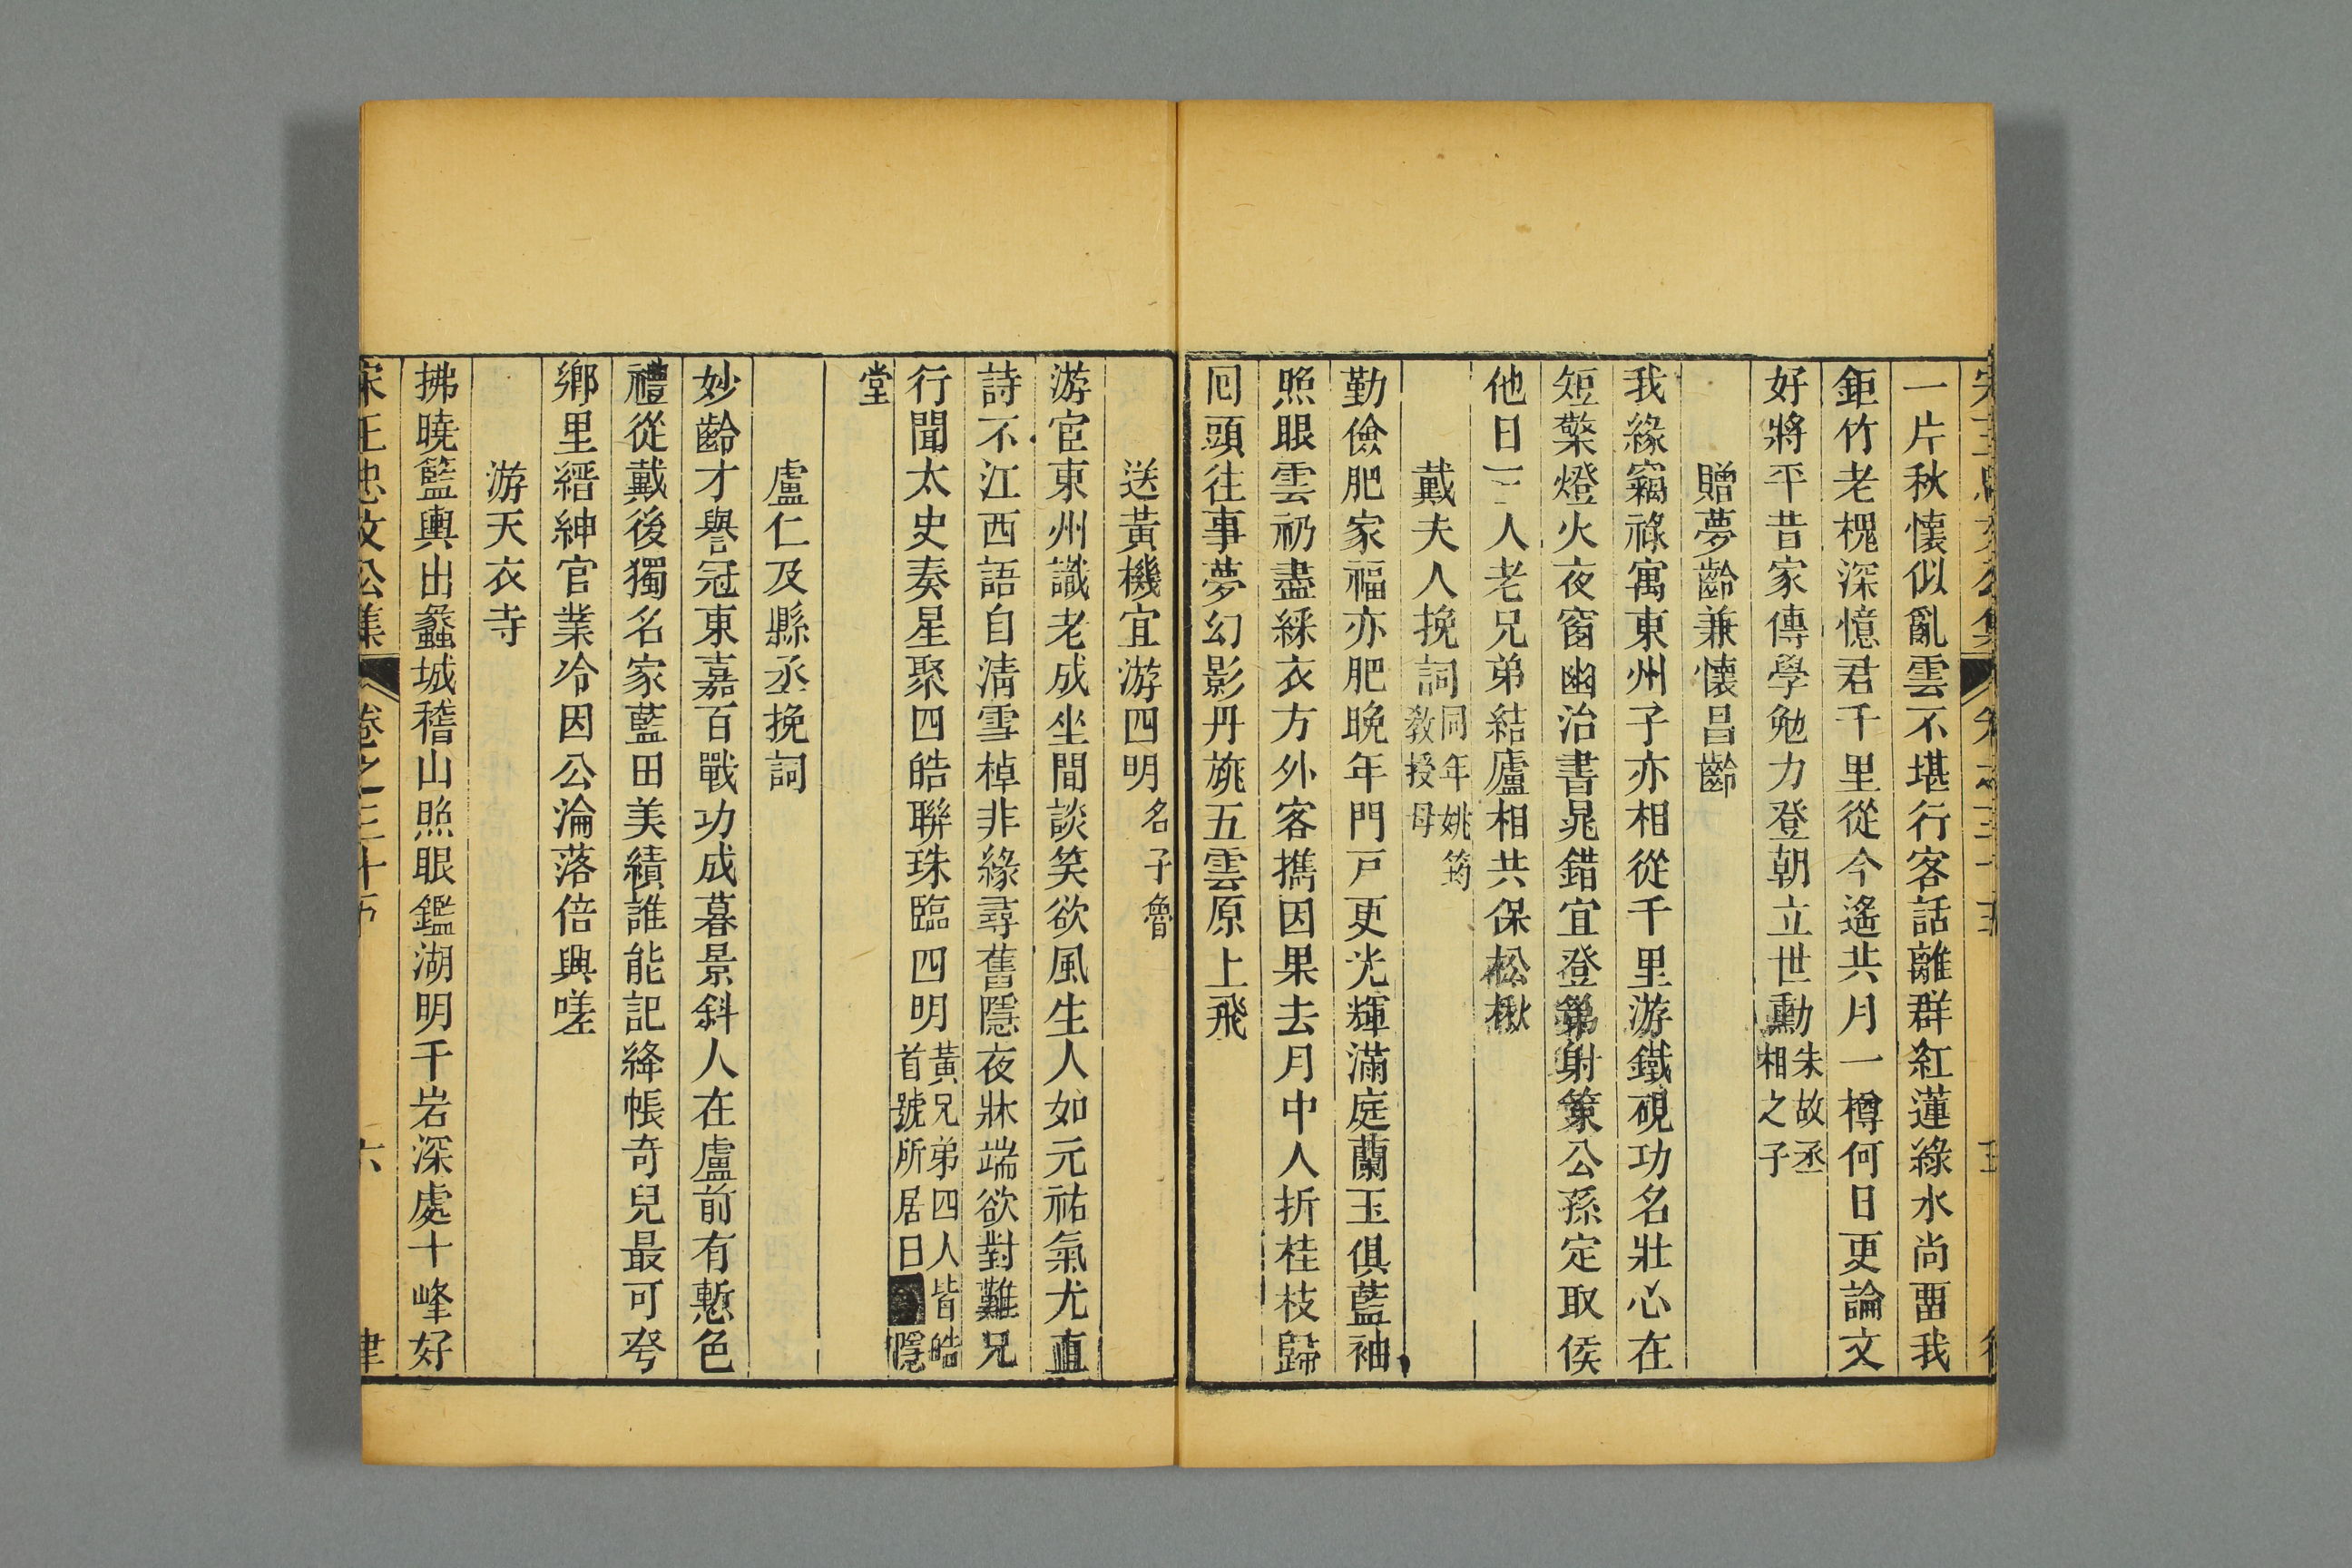 一片秋懷似亂雲不堪行客話離群紅蓮綠水尚畱我
鉅竹老槐深憶君千里從今遙共月一樽何日更論文
好將平昔家傳學勉力登朝立世勳朱故丞相之子
贈夢齡兼懷昌齡
我緣竊祿寓東州子亦相從千里游鐵硯功名壯心在
短檠燈火夜窗幽治書晁錯宜登第射策公孫定取侯
他日一二人老兄弟結廬相共保松楸
戴夫人挽詞同年姚筠教授母
勤儉肥家福亦肥晚年門戸更光輝滿庭蘭玉俱藍袖
照眼雲礽盡綵衣方外客攜因果去月中人折桂枝歸
囘頭往事夢幻影丹旐五雲原上飛
送黃機宜游四明名子魯
游宦東州識老成坐間談笑欲風生人如元祐氣尤直
詩不江西語自清雪棹非緣尋舊隱夜牀端欲對難兄
行聞太史奏星聚四皓聯珠臨四明黃兄弟四人皆皓首號所居曰隱
堂
盧仁及縣丞挽詞
妙齡才譽冠東嘉百戰功成暮景斜人在盧前有慙色
禮從戴後獨名家藍田美績誰能記絳帳奇兒最可夸
鄉里縉紳官業冷因公淪落倍興嗟
游天衣寺
拂曉籃輿出蠡城稽山照眼鑑湖明千岩深處十峰好
宋王忠文公集 卷之三十五 六